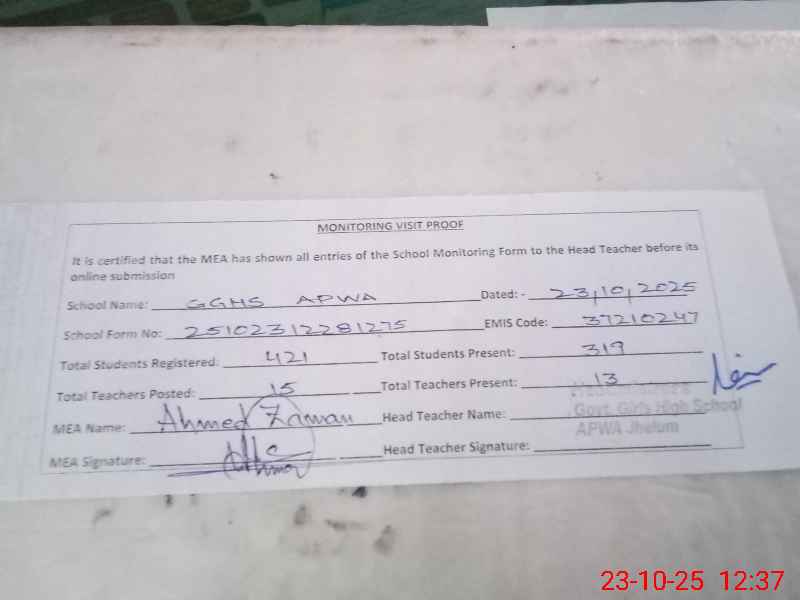 MONITORING VISIT PROOF
It is certified that the MEA has shown all entries of the School Monitoring Form to the Head Teacher before its
online submission
School Name: GGHS APWA Dated: - 23,10,2025
School Form No: 25102312281275 EMIS Code: 37210247
Total Students Registered: 421 Total Students Present: 319
Total Teachers Posted: 15 Total Teachers Present: 13
MEA Name: Ahmed Zaman Head Teacher Name:
Govt. Girls High School
APWA Jhelum
MEA Signature: Head Teacher Signature:
23-10-25 12:37